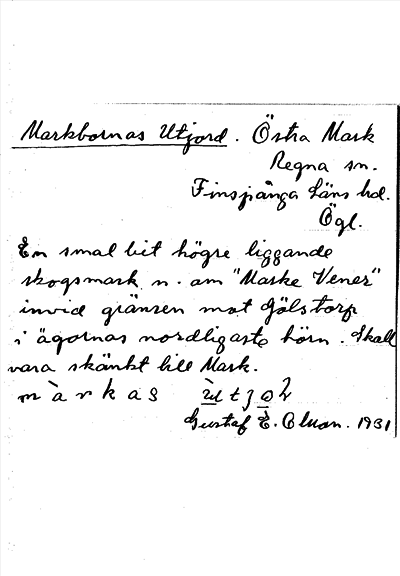 Markbornas Utjord. Östra Mark
Regna sn.
Finspånga läns hd.
Ögl.
En smal bit högre liggande
skogsmark n. om "Marke Vener"
invid gränsen mot Gölstorp
i ägornas nordligaste hörn. Skall
vara skänkt till Mark.
m à r k a s
Gustaf E. 1931